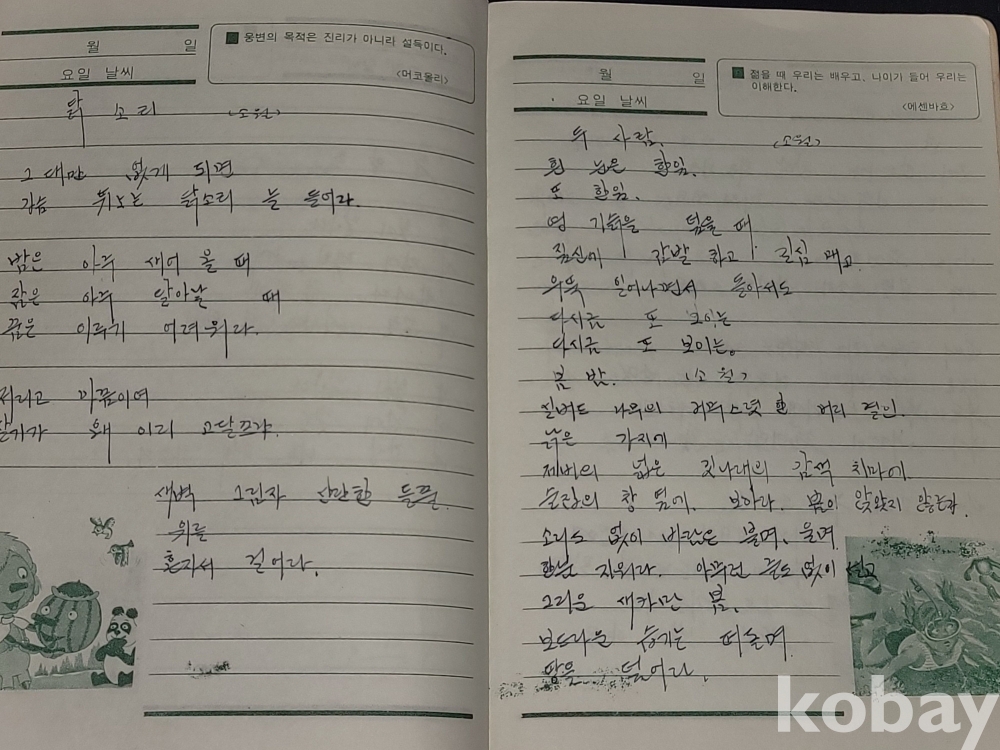 월 일
요일 날씨
웅변의 목적은 진리가 아니라 설득이다.
<머코올리>
닭 소리 <소월>
그대만 없게 되면
가슴 뛰노는 닭소리 늘 들어라.
밤은 아주 새어 올 때
잠은 아주 달아날 때
꿈은 이루기 어려워라.
저리고 아픔이여
살기가 왜 이리 고달프랴.
새벽 그림자 산란한 들풀
위를
혼자서 걸어라.
월 일
요일 날씨
젊을 때 우리는 배우고, 나이가 들어 우리는
이해한다.
<에센바흐>
두 사람. <소월>
흰 눈은 한잎.
또 한잎.
영 기슭을 덮을 때.
짚신에 감발 하고 길심 매고
우뚝 일어나면서 돌아서도
다시금 또 보이는
다시금 또 보이는.
봄 밤. <소월>
실버드 나무의 거무스렷한 머리 결인
낡은 가지에
제비의 넓은 깃나래의 감색 치마에
술집의 창 옆에. 보아라. 봄이 앉았지 않은가.
소리도 없이 바람은 불며. 울며
한숨 지워라. 아무런 줄도 없이 섧고
그리운 새카만 봄.
보드라운 습기는 떠돌며
땅을 덮어라.
kobay